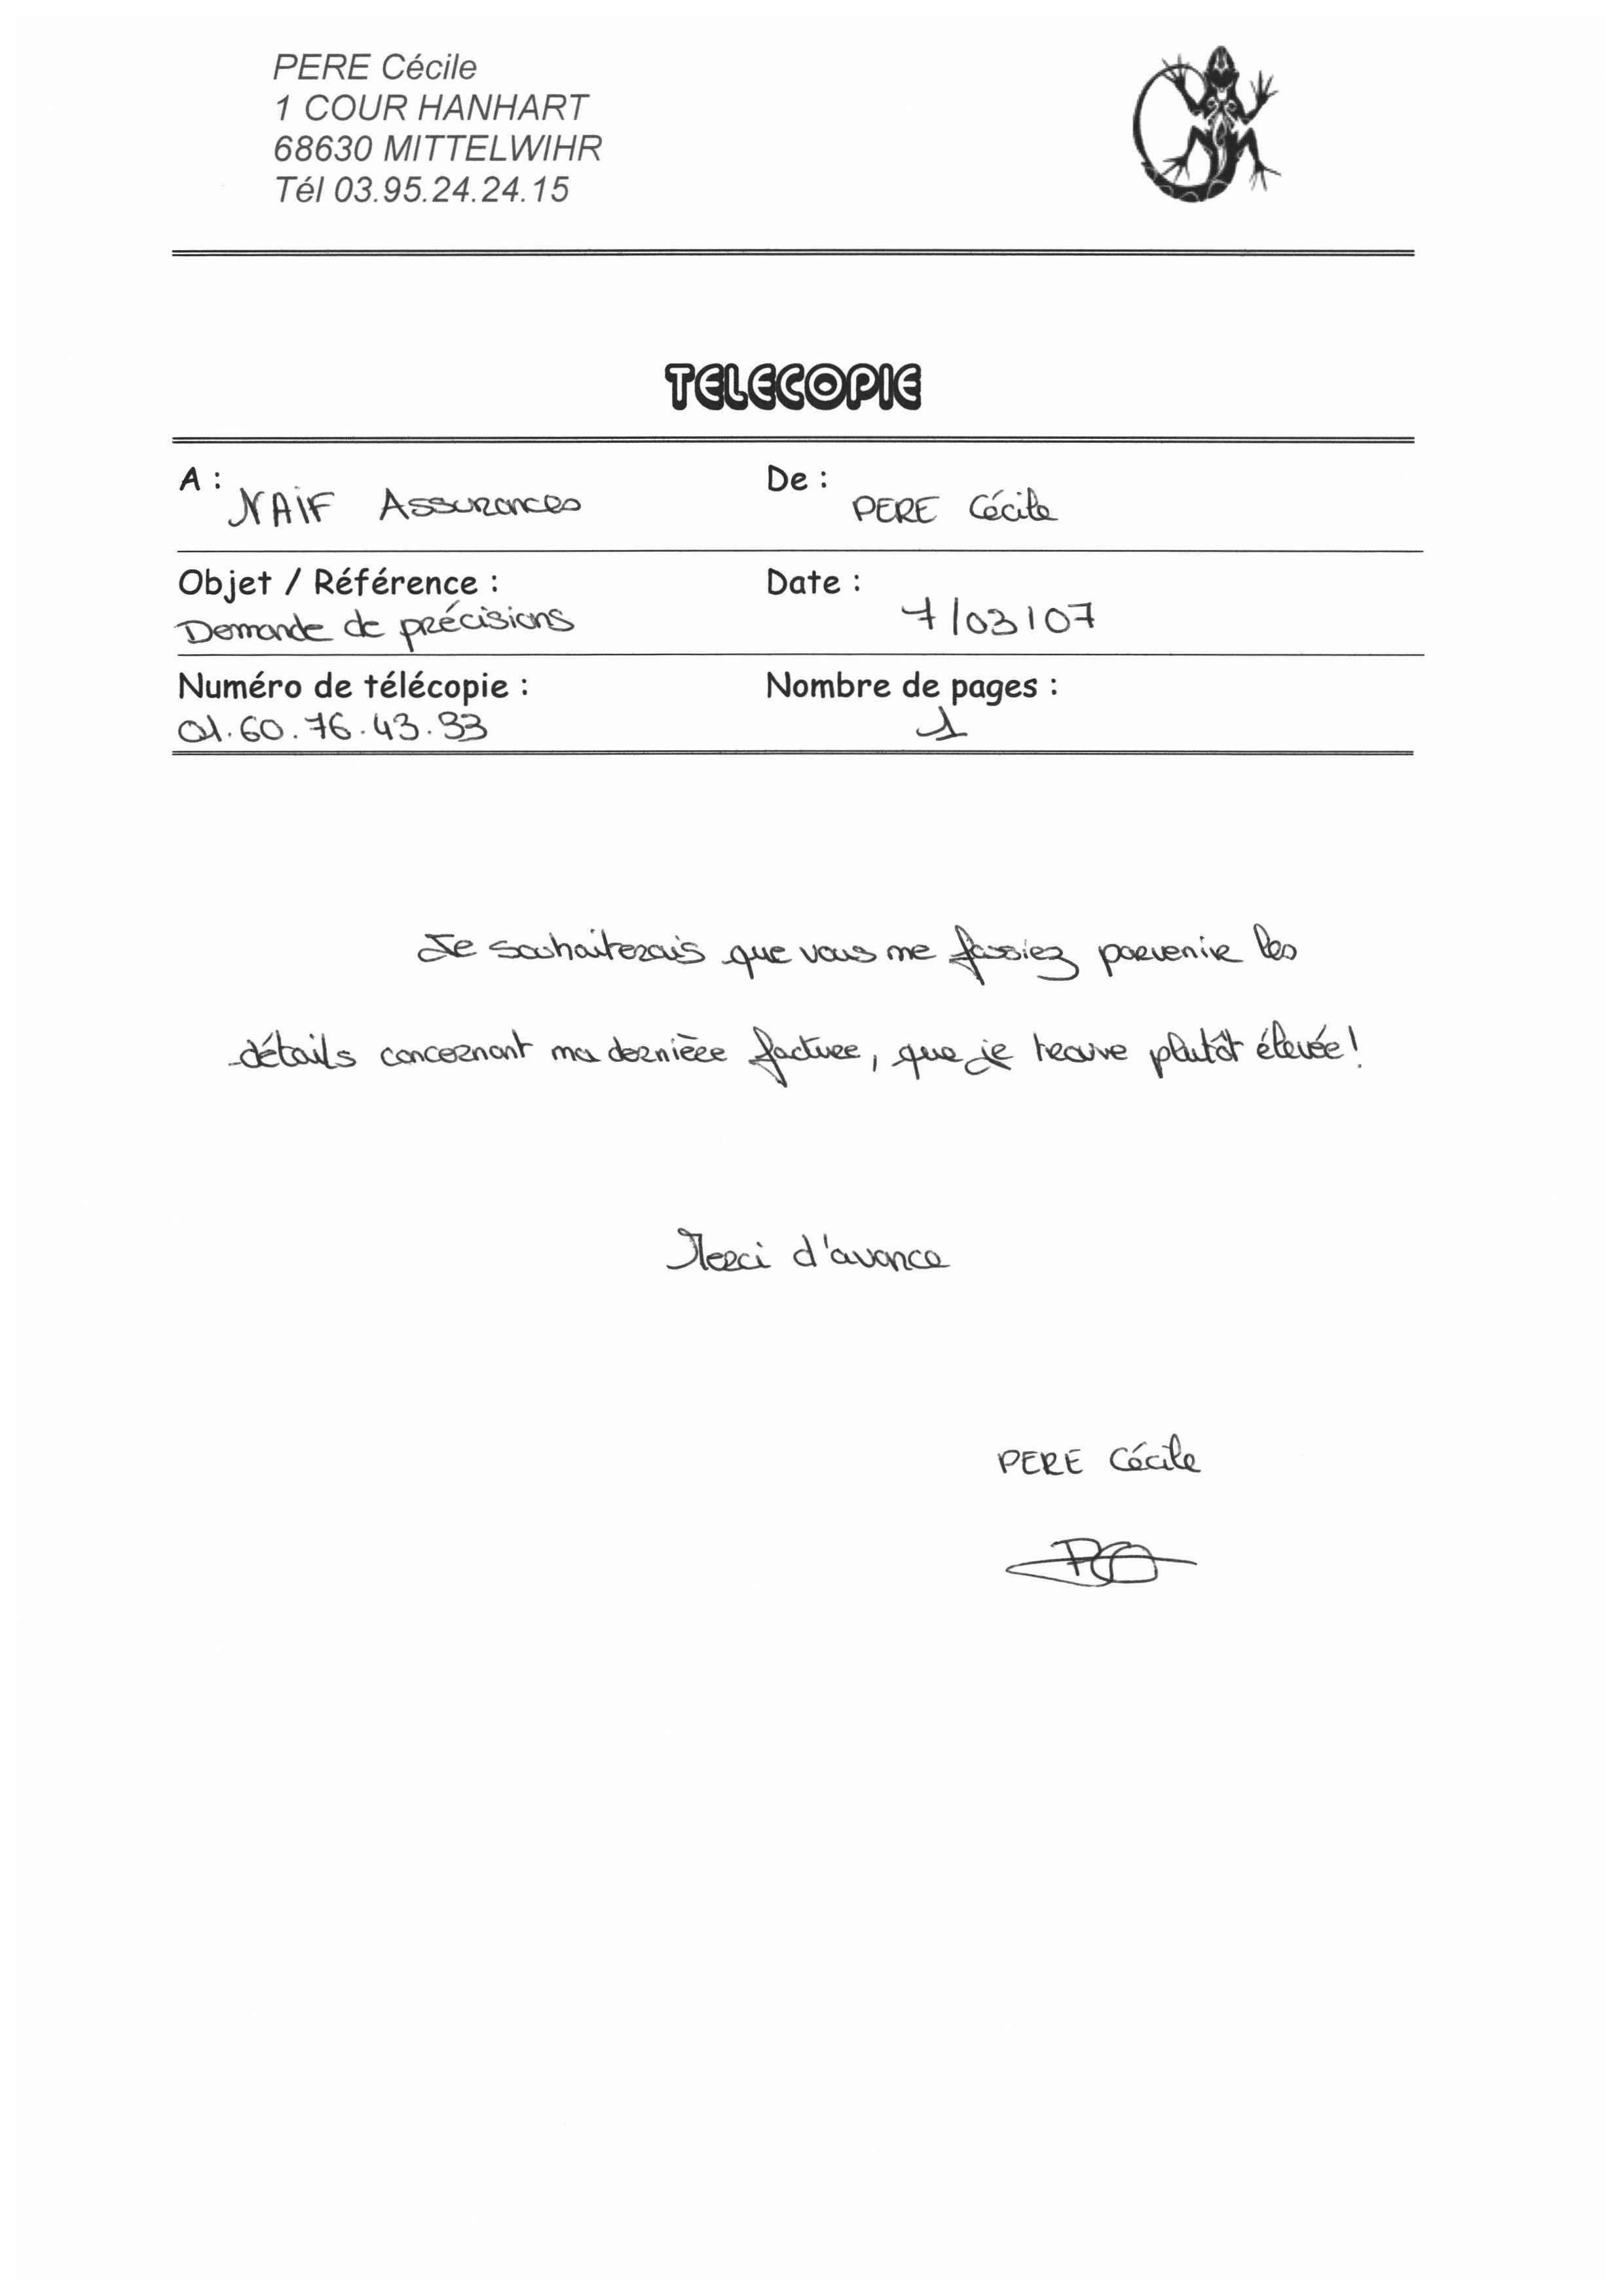 PERE Cécile
1 COUR HANHART
68630 MITTELWIHR
Tél 03.95.24.24.15
TELECOPIE
A : NAIF Assurances
De : PERE Cécile
Objet / Référence :
Demande de précisions
Date : 7/03/07
Numéro de télécopie :
01.60.76.43.93
Nombre de pages :
1
Je souhaiterais que vous me fassiez parvenir les
détails concernant ma dernière facture, que je trouve plutôt élevée!
Merci d'avance
PERE Cécile